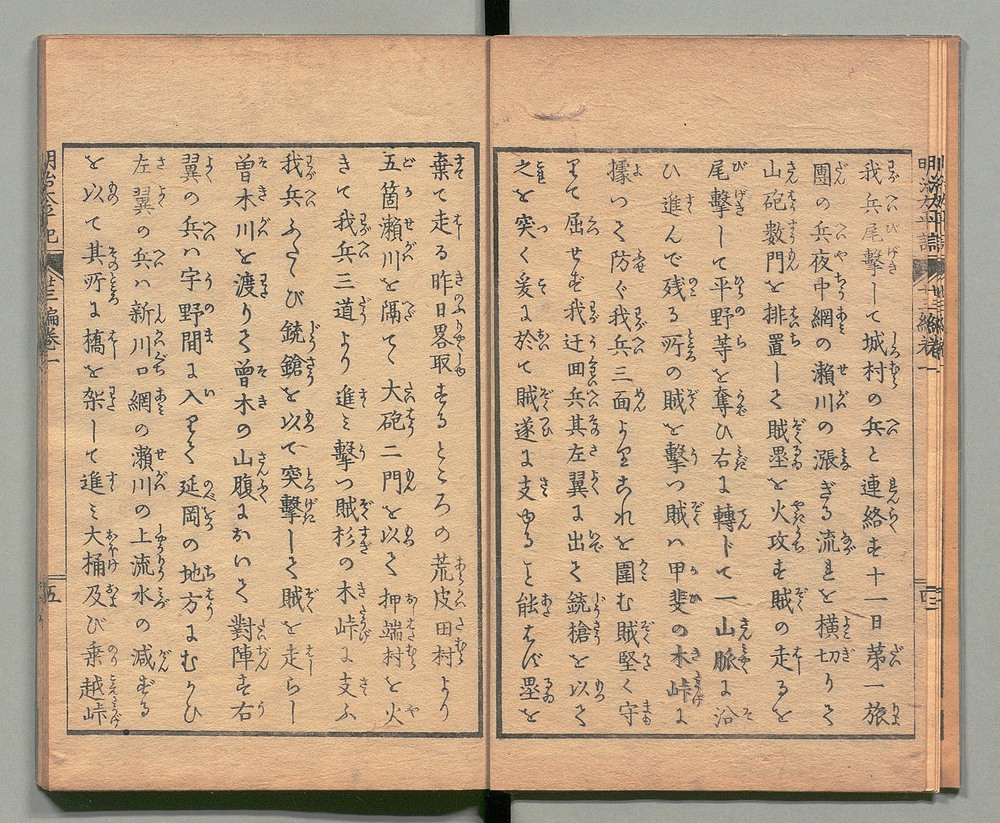 我兵尾擊して城村の兵と連絡す十一日第一旅
團の兵夜中網の瀬川の漲ぎる流れを横切りて
山砲數門を排置して賊塁を火攻す賊の走るを
尾擊して平野等を奪ひ右に轉じて一山脈に沿
ひ進んで残る所の賊を擊つ賊ハ甲斐の木峠に
據いて防ぐ我兵三面よりこれを圍む賊堅く守
りて屈せず我迂回兵其左翼に出て銃槍を以て
之を突く爰に於て賊遂に支ゆること能はず塁を
棄て走る昨日畧取するところの荒皮田村より
五箇瀬川を隔て大砲二門を以て押端村を火
きて我兵三道より進ミ擊つ賊杉の木峠に支ふ
我兵ふたゝび銃鎗を以て突擊して賊を走らし
曽木川を渡りて曽木の山腹において對陣す右
翼の兵ハ宇野間に入りて延岡の地方にむかひ
左翼の兵ハ新川口網の瀬川の上流水の減ずる
を以て其所に橋を架して進ミ大桶及び乗越峠
明治太平記
五